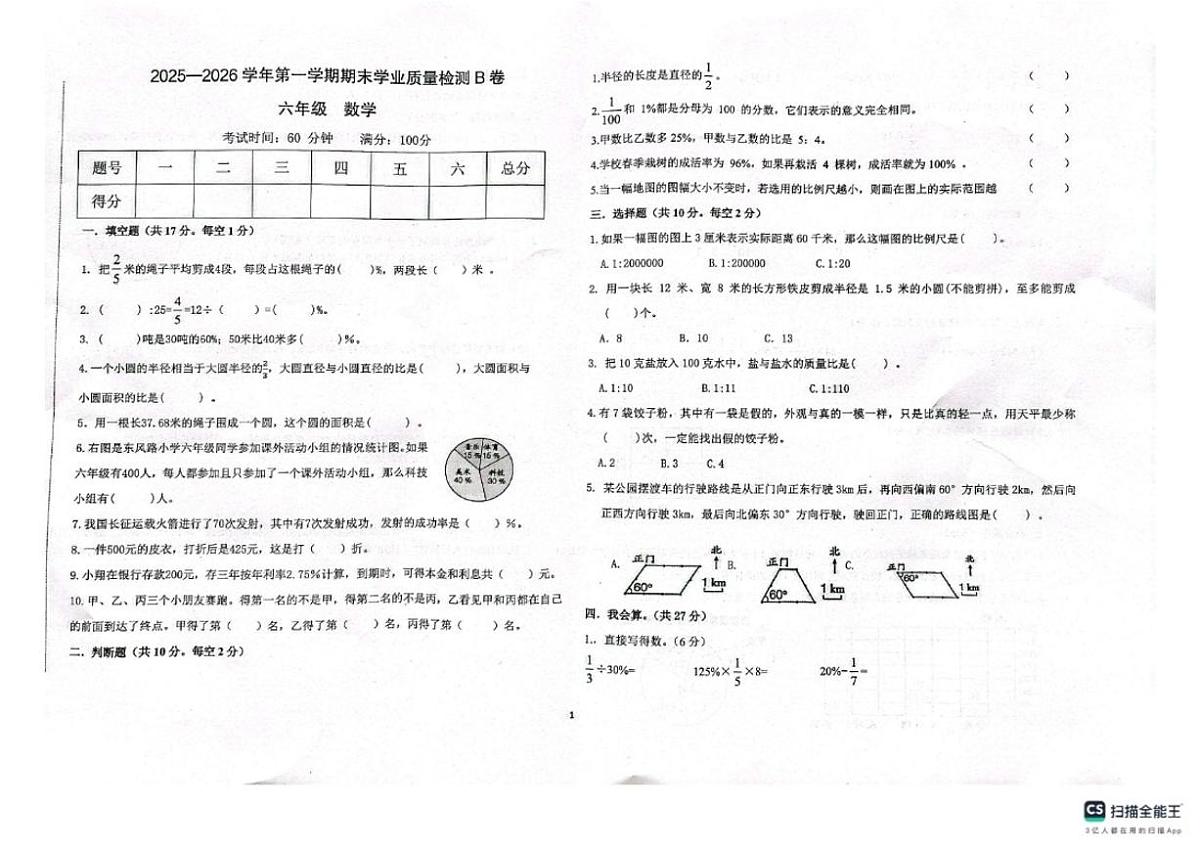 2025—2026 学年第一学期期末学业质量检测 B 卷
六年级 数学
考试时间：60 分钟 满分：100分
题号 一 二 三 四 五 六 总分
得分
一．填空题（共 17 分。每空 1 分）
1. 把2/5米的绳子平均剪成4段，每段占这根绳子的( )%，两段长( )米 。
2. ( ) :25=4/5=12÷( )=( )%。
3. ( )吨是30吨的60%；50米比40米多( )%。
4.一个小圆的半径相当于大圆半径的，大圆直径与小圆直径的比是( )，大圆面积与
小圆面积的比是( ) 。
5．用一根长37.68米的绳子围成一个圆，这个圆的面积是( ) 。
6.右图是东风路小学六年级同学参加课外活动小组的情况统计图。如果
六年级有400人，每人都参加且只参加了一个课外活动小组，那么科技
小组有( )人。
音乐 15% 体育 15%
美术 40% 科技 30%
7.我国长征运载火箭进行了70次发射，其中有7次发射成功，发射的成功率是( ) %。
8.一件500元的皮衣，打折后是425元，这是打( )折。
9.小翔在银行存款200元，存三年按年利率2.75%计算，到期时，可得本金和利息共( )元。
10.甲、乙、丙三个小朋友赛跑。得第一名的不是甲，得第二名的不是丙，乙看见甲和丙都在自己
的前面到达了终点。甲得了第( )名，乙得了第( )名，丙得了第( )名。
二．判断题（共 10 分。每空 2 分）
1.半径的长度是直径的1/2。 ( )
2.1/100和 1%都是分母为 100 的分数，它们表示的意义完全相同。 ( )
3.甲数比乙数多 25%，甲数与乙数的比是 5：4。 ( )
4.学校春季栽树的成活率为 96%，如果再栽活 4 棵树，成活率就为 100% 。 ( )
5.当一幅地图的图幅大小不变时，若选用的比例尺越小，则画在图上的实际范围越 ( )
三．选择题（共 10 分。每空 2 分）
1.如果一幅图的图上 3 厘米表示实际距离 60 千米，那么这幅图的比例尺是( )。
A.1:2000000 B.1:200000 C.1:20
2. 用一块长 12 米、宽 8 米的长方形铁皮剪成半径是 1.5 米的小圆(不能剪拼)，至多能剪成
( )个。
A. 8 B. 10 C. 13
3. 把 10 克盐放入 100 克水中，盐与盐水的质量比是( ) 。
A.1:10 B.1:11 C.1:110
4.有 7 袋饺子粉，其中有一袋是假的，外观与真的一模一样，只是比真的轻一点，用天平最少称
( )次，一定能找出假的饺子粉。
A.2 B.3 C.4
5. 某公园摆渡车的行驶路线是从正门向正东行驶 3km 后，再向西偏南 60° 方向行驶 2km，然后向
正西方向行驶 3km，最后向北偏东 30° 方向行驶，驶回正门，正确的路线图是( ) 。
A. 正门 60° 北 1 km B. 正门 60° 北 1 km C. 正门 60° 北 1 km
四．我会算。（共 27 分）
1.．直接写得数。（6 分）
1/3÷30%= 125%×1/5×8= 20%-1/7=
1
CS 扫描全能王
3亿人都在用的扫描App